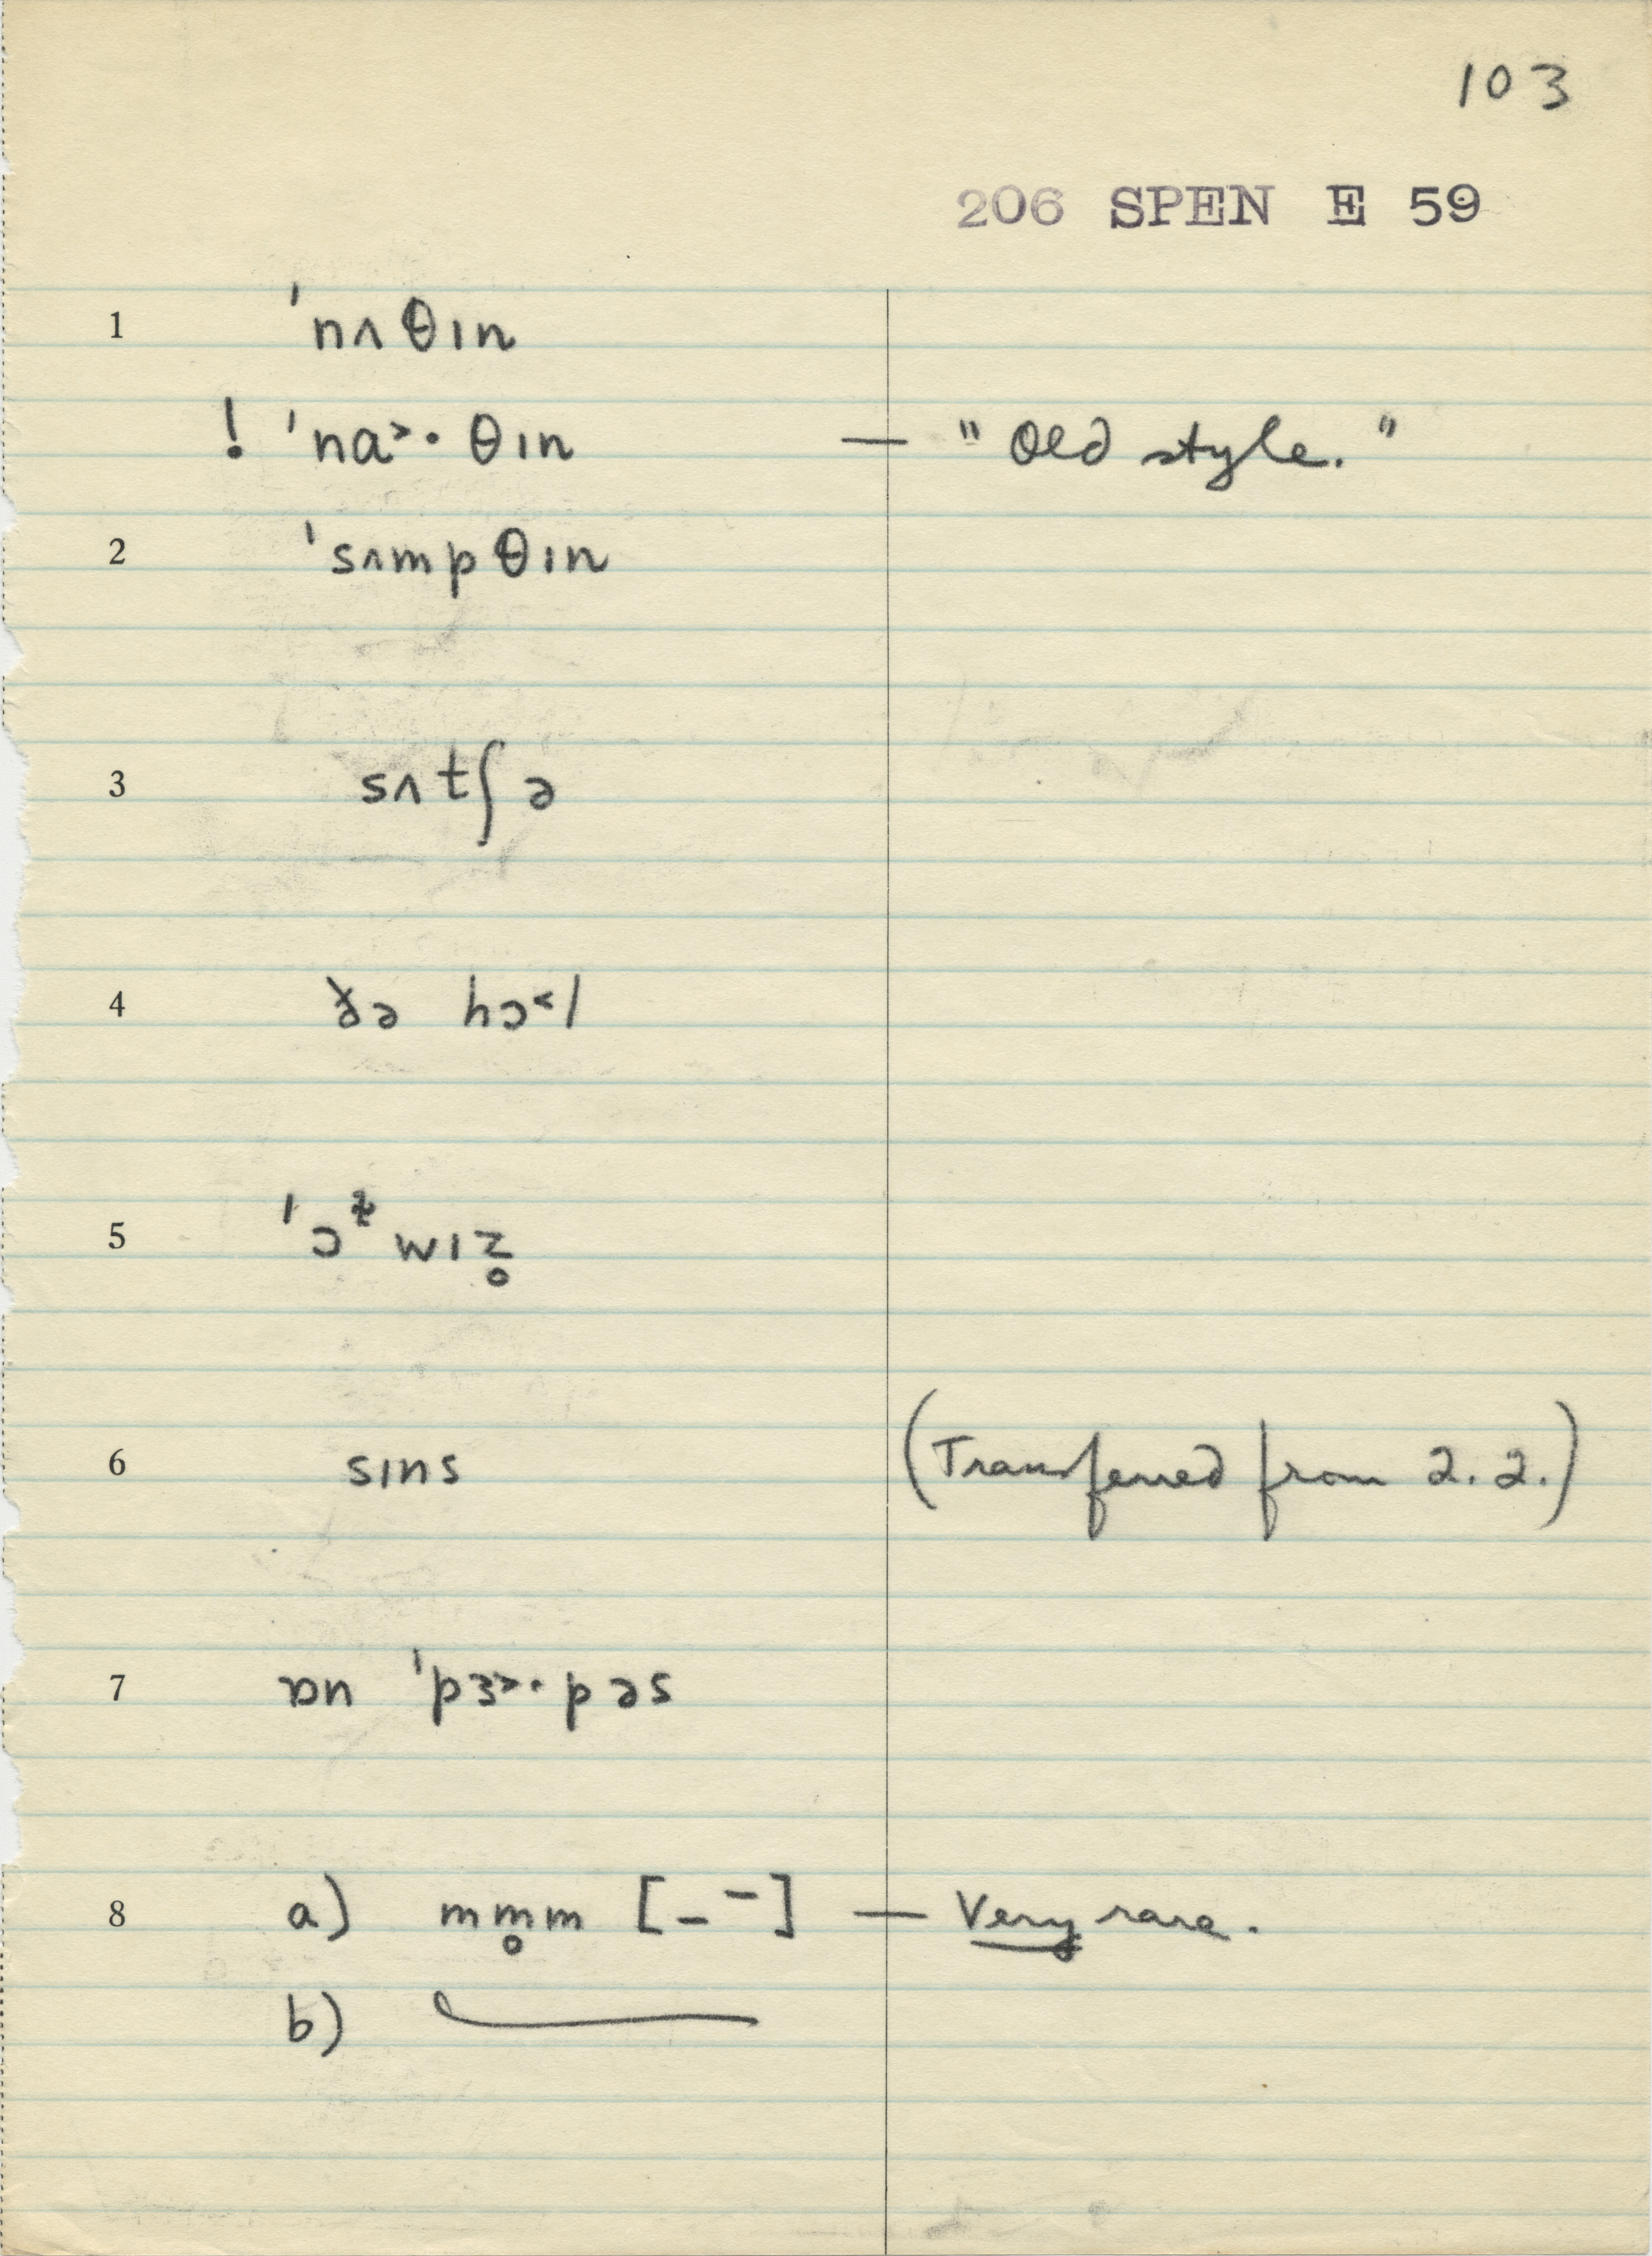 103
206 SPEN E 59
1 ˈnʌθɪn
! ˈna˃·θɪn — "Old style."
2 ˈsʌmpθɪn
3 sʌtʃə
4 ðə hɔ˂l
5 ˈɔᶻwɪz̥
6 sɪns (Transferred from 2.2.)
7 ɒn ˈpɜ˃·pəs
8 a) mm̥m [_ ¯] — Very rare.
b) —